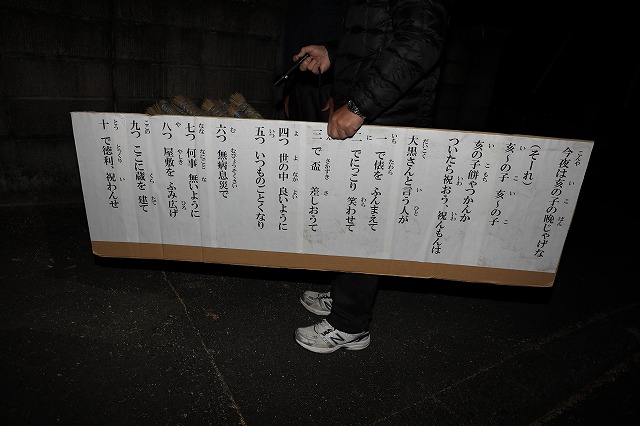 今夜は亥の子の晩じゃげな
(そーれ)
亥～の子 亥～の子
亥の子餅やつかんか
ついたら祝おう、祝んもんは
大黒さんと言う人が
一で俵を ふんまえて
二でにっこり 笑わせて
三で盃 差しおうて
四つ 世の中 良いように
五つ いつものごとくなり
六つ 無病息災で
七つ 何事 無いように
八つ 屋敷を ふみ広げ
九つ ここに蔵を 建て
十で徳利 祝わんせ